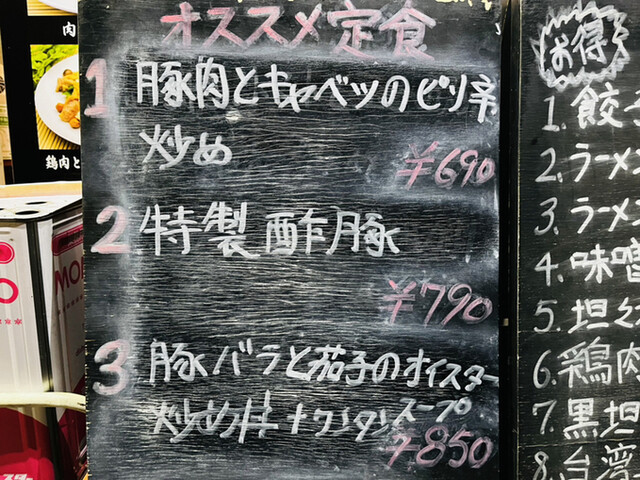 オススメ定食
1 豚肉とキャベツのピリ辛
炒め
¥690
2 特製酢豚
¥790
3 豚バラと茄子のオイスター
炒め丼+ワンタンスープ
¥850
お得
1. 餃子
2. ラーメン
3. ラーメン
4. 味噌
5. 坦々
6. 鶏肉
7. 黒坦
8. 台湾
肉
鶏肉と
MO
スター